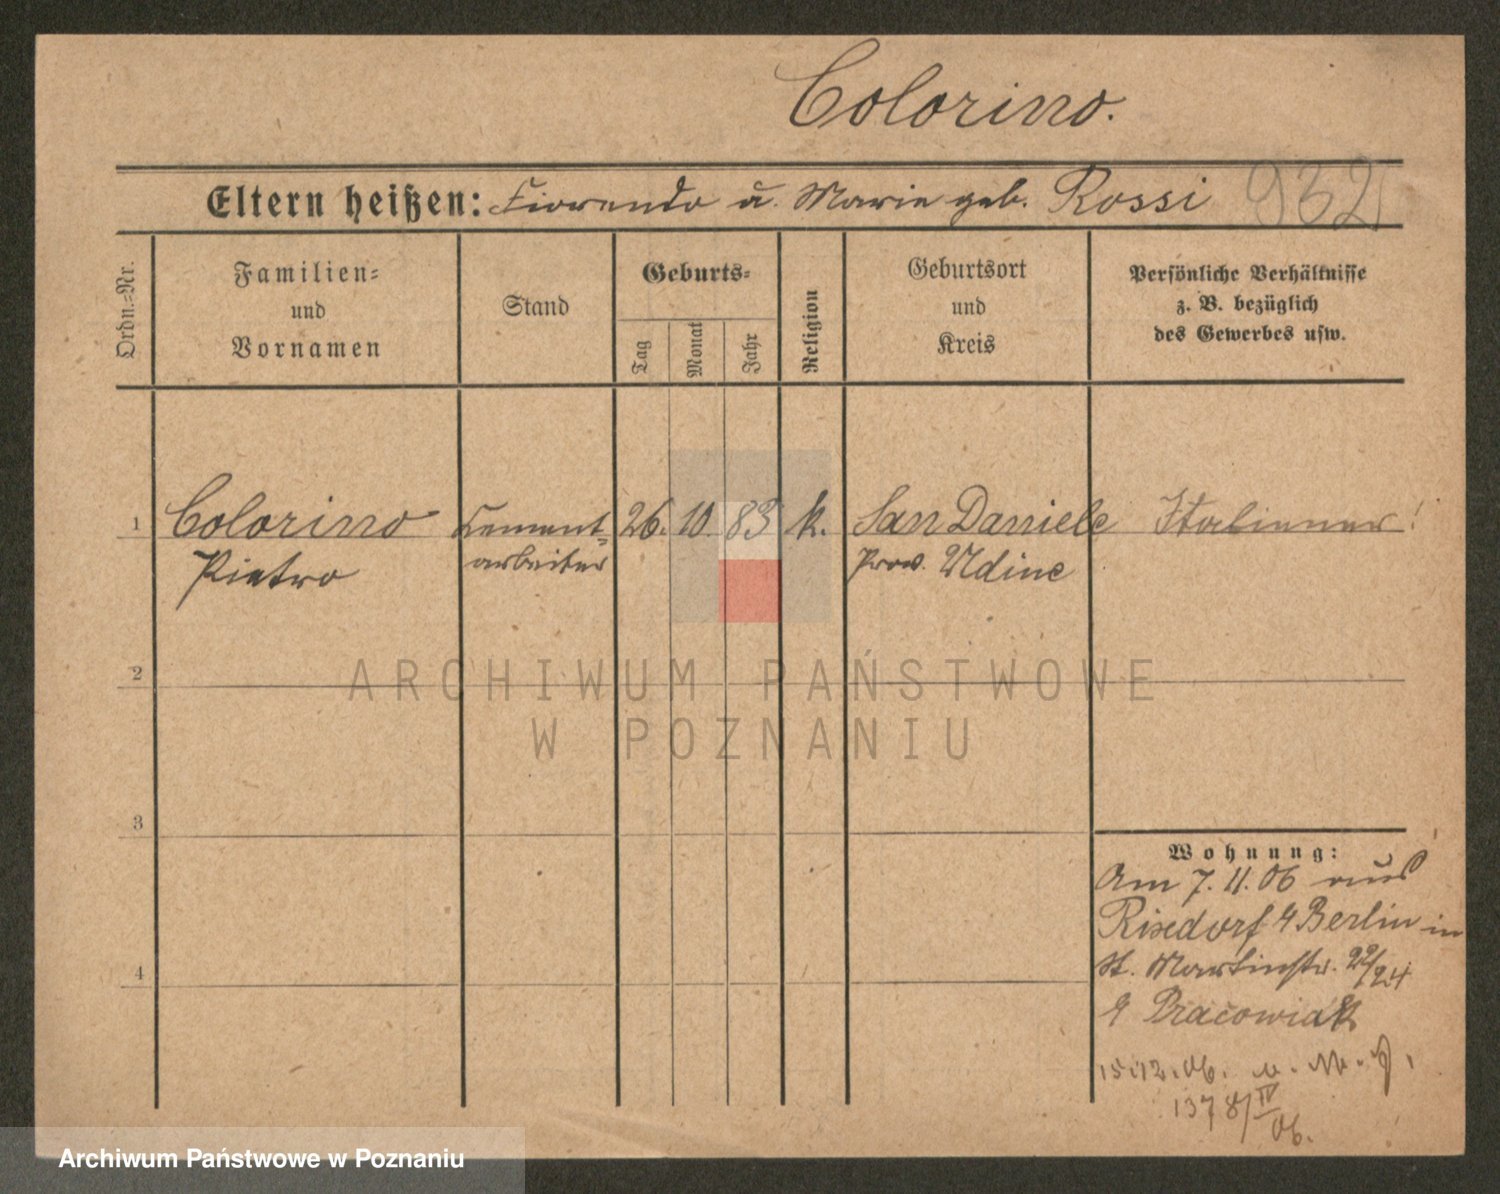 Colorino.
Eltern heißen: Fiorendo u. Marie geb. Rossi 932
Ordn.=Nr.
Familien=
und
Vornamen
Stand
Geburts=
Tag
Monat
Jahr
Religion
Geburtsort
und
Kreis
Persönliche Verhältnisse
z. B. bezüglich
des Gewerbes usw.
1 Colorino Cement= 26. 10. 83 k. San Daniele Italiener!
Pietro arbeiter Prov. Udine
2
3
4
Wohnung:
Am 7. 11. 06 aus
Rixdorf Berlin in
St. Martinstr. 22/24
Pracowiak
15.12.06.
1378/IV
06.
ARCHIWUM PAŃSTWOWE
W POZNANIU
Archiwum Państwowe w Poznaniu